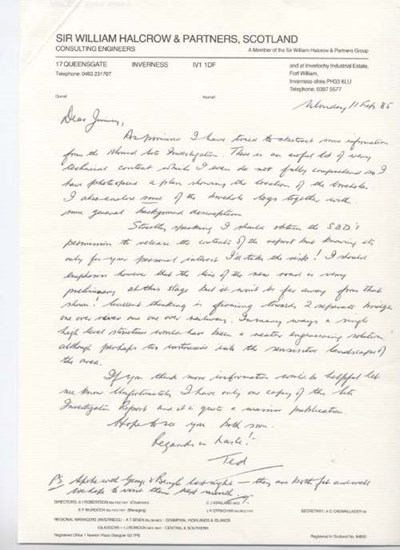 SIR WILLIAM HALCROW & PARTNERS, SCOTLAND
CONSULTING ENGINEERS
A Member of the Sir William Halcrow & Partners Group
17 QUEENSGATE INVERNESS IV1 1DF
Telephone: 0463 231797
and at Inverlochy Industrial Estate,
Fort William,
Inverness-shire PH33 6LU
Telephone: 0397 5577
Our ref Your ref
Monday 11 Feb. 85
Dear Jimmy,
As promised I have tried to abstract some information
from the Site Investigation. There is an awful lot of very
technical content which I even do not fully comprehend so I
have photocopied a plan showing the location of the boreholes.
I also enclose some of the borehole logs together with
some general background description
Strictly speaking I should obtain the S.D.D.'s
permission to release the contents of the report but knowing it's
only for your personal interest I'll take the risk! I should
emphasise however that the line of the new road is very
preliminary at this stage but it won't be far away from that
shown! Current thinking is favouring towards 2 separate bridges
one over river one over railway. In many ways a single
high level structure would have been a neater engineering solution
although perhaps too into the sensitive landscape of
the area.
If you think more information would be helpful let
me know. Unfortunately I have only one copy of the Site
Investigation Report and it's quite a massive publication.
Hope to see you both soon.
Regards in haste! -
Ted
PS. Spoke with & last night - they are both fit and well
& hope to visit them next month.
DIRECTORS:
REGIONAL MANAGERS (INVERNESS)
Registered Office
Registered in Scotland